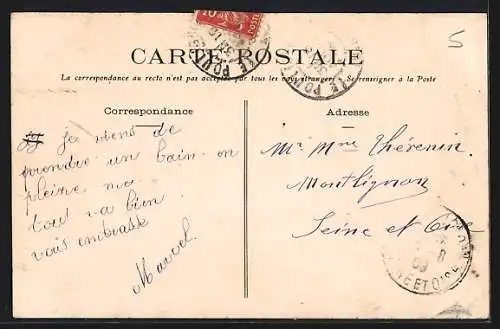 5
CARTE POSTALE
La correspondance au recto n'est pas acceptée par tous les pays étrangers - Se renseigner à la Poste
Correspondance
Adresse
Je viens de
prendre un bain en
pleine
tout va bien
vous embrasse
Marcel
Mr Mme Thévenin
Montlignon
Seine et Oise
ET OISE